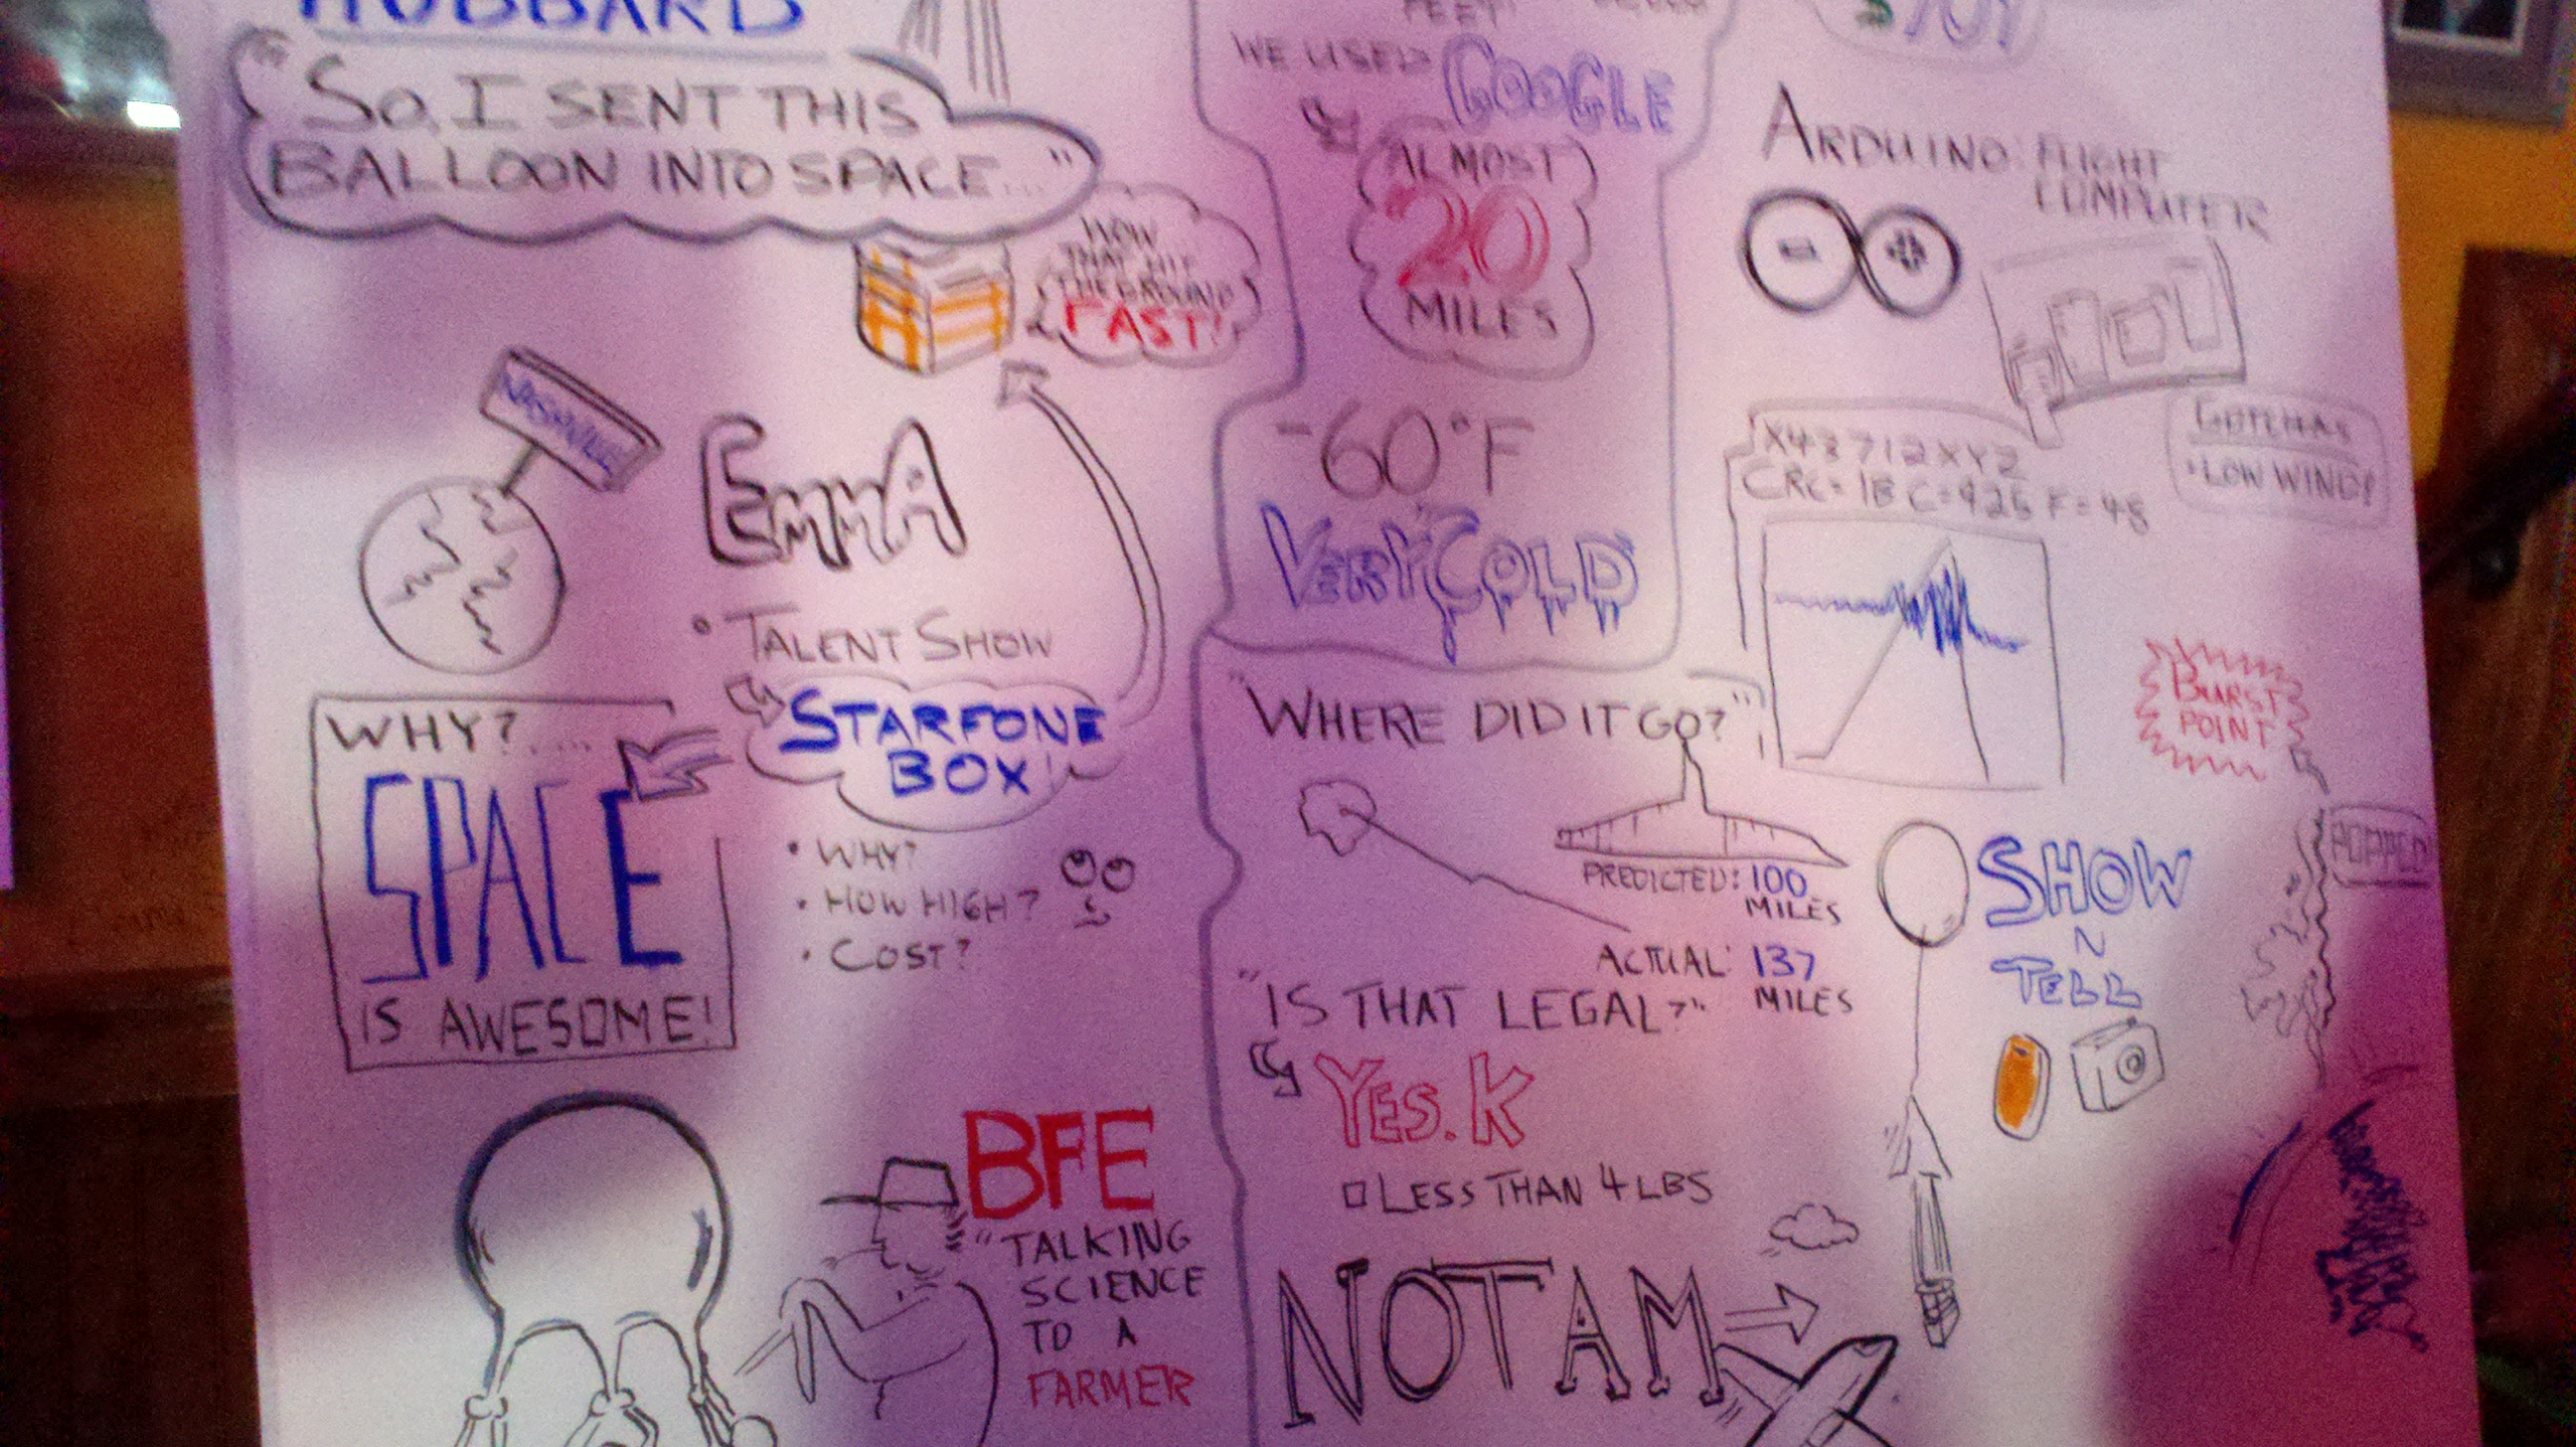 HUBBARD
"So, I SENT THIS
BALLOON INTO SPACE..."
WOW
THAT HIT
THE GROUND
FAST!
NASHVILLE
EMMA
• TALENT SHOW
STARFONE
BOX!
WHY?....
SPACE
IS AWESOME!
• WHY?
• HOW HIGH?
• COST?
BFE
"TALKING
SCIENCE
TO A
FARMER
FEET
WE USED GOOGLE
ALMOST
20
MILES
-60°F
VERY COLD
"WHERE DID IT GO?"
PREDICTED: 100
MILES
ACTUAL: 137
MILES
"IS THAT LEGAL?"
YES. K
LESS THAN 4 LBS
NOTAM
$701
ARDUINO: FLIGHT
COMPUTER
- +
X43712XYZ
CRC=1B C=925 F=48
GOTCHAS
• LOW WIND!
BURST
POINT
POPPED
SHOW
N
TELL